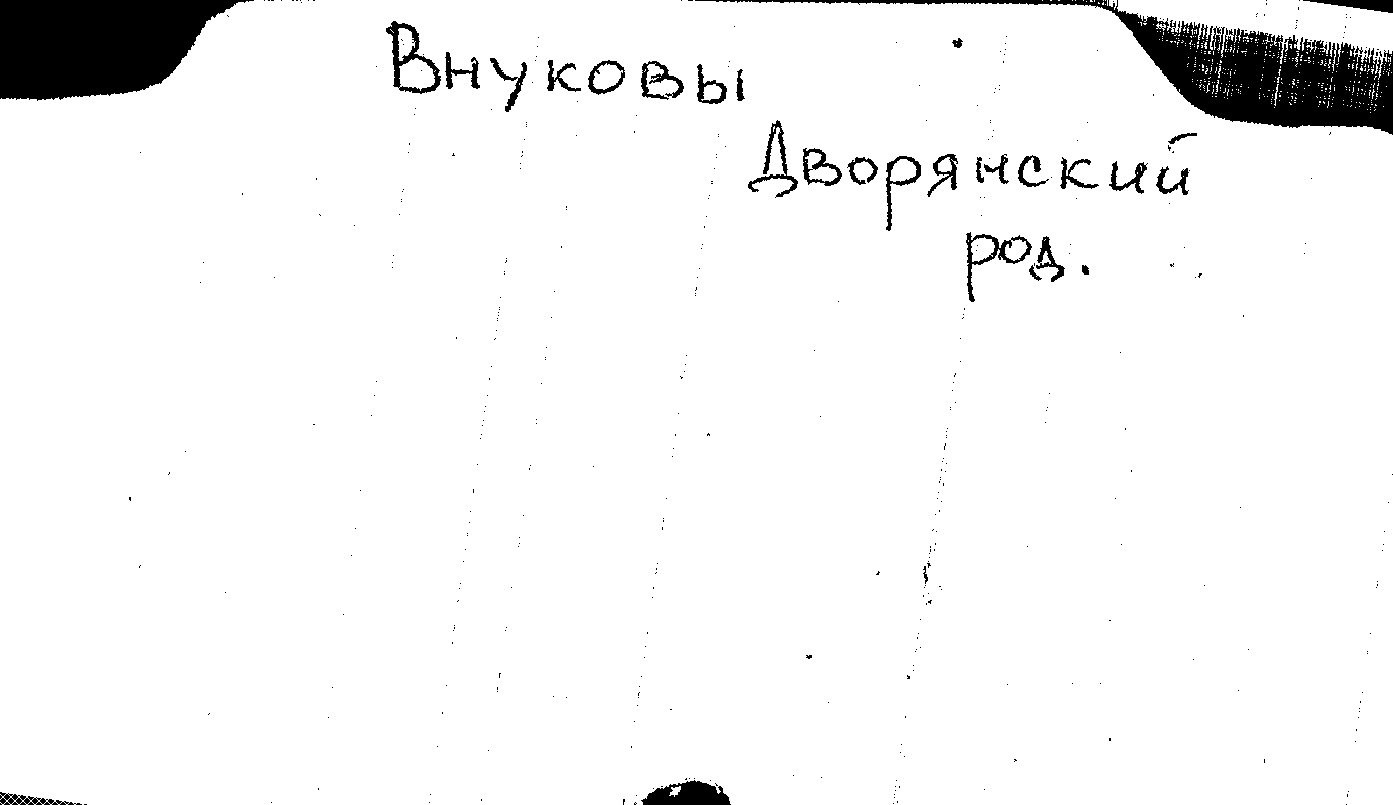 Внуковы
Дворянский
род.